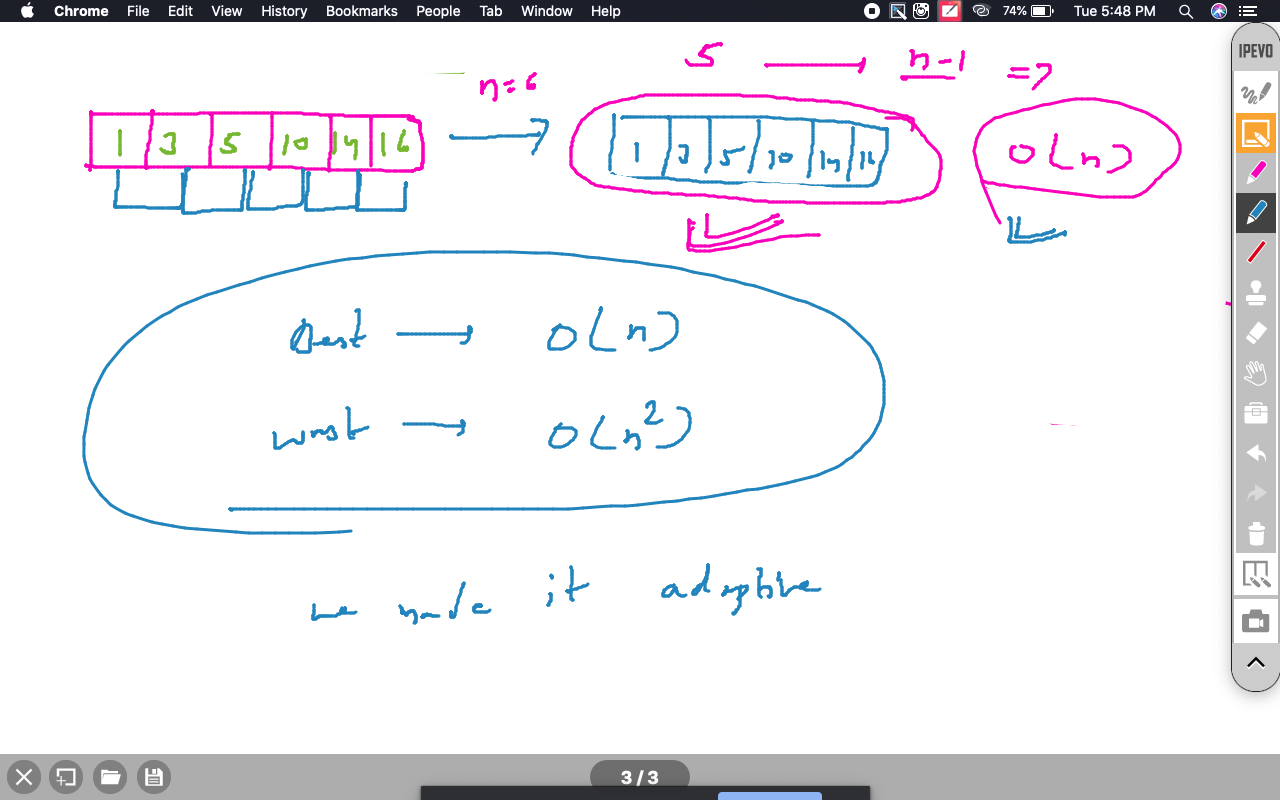 Chrome File Edit View History Bookmarks People Tab Window Help 74% Tue 5:48 PM
IPEVO
n=6 5 → n-1 =>
1 3 5 10 14 16 → 1 3 5 10 14 16 O(n)
Best → O(n)
worst → O(n²)
we made it adaptive
3 / 3